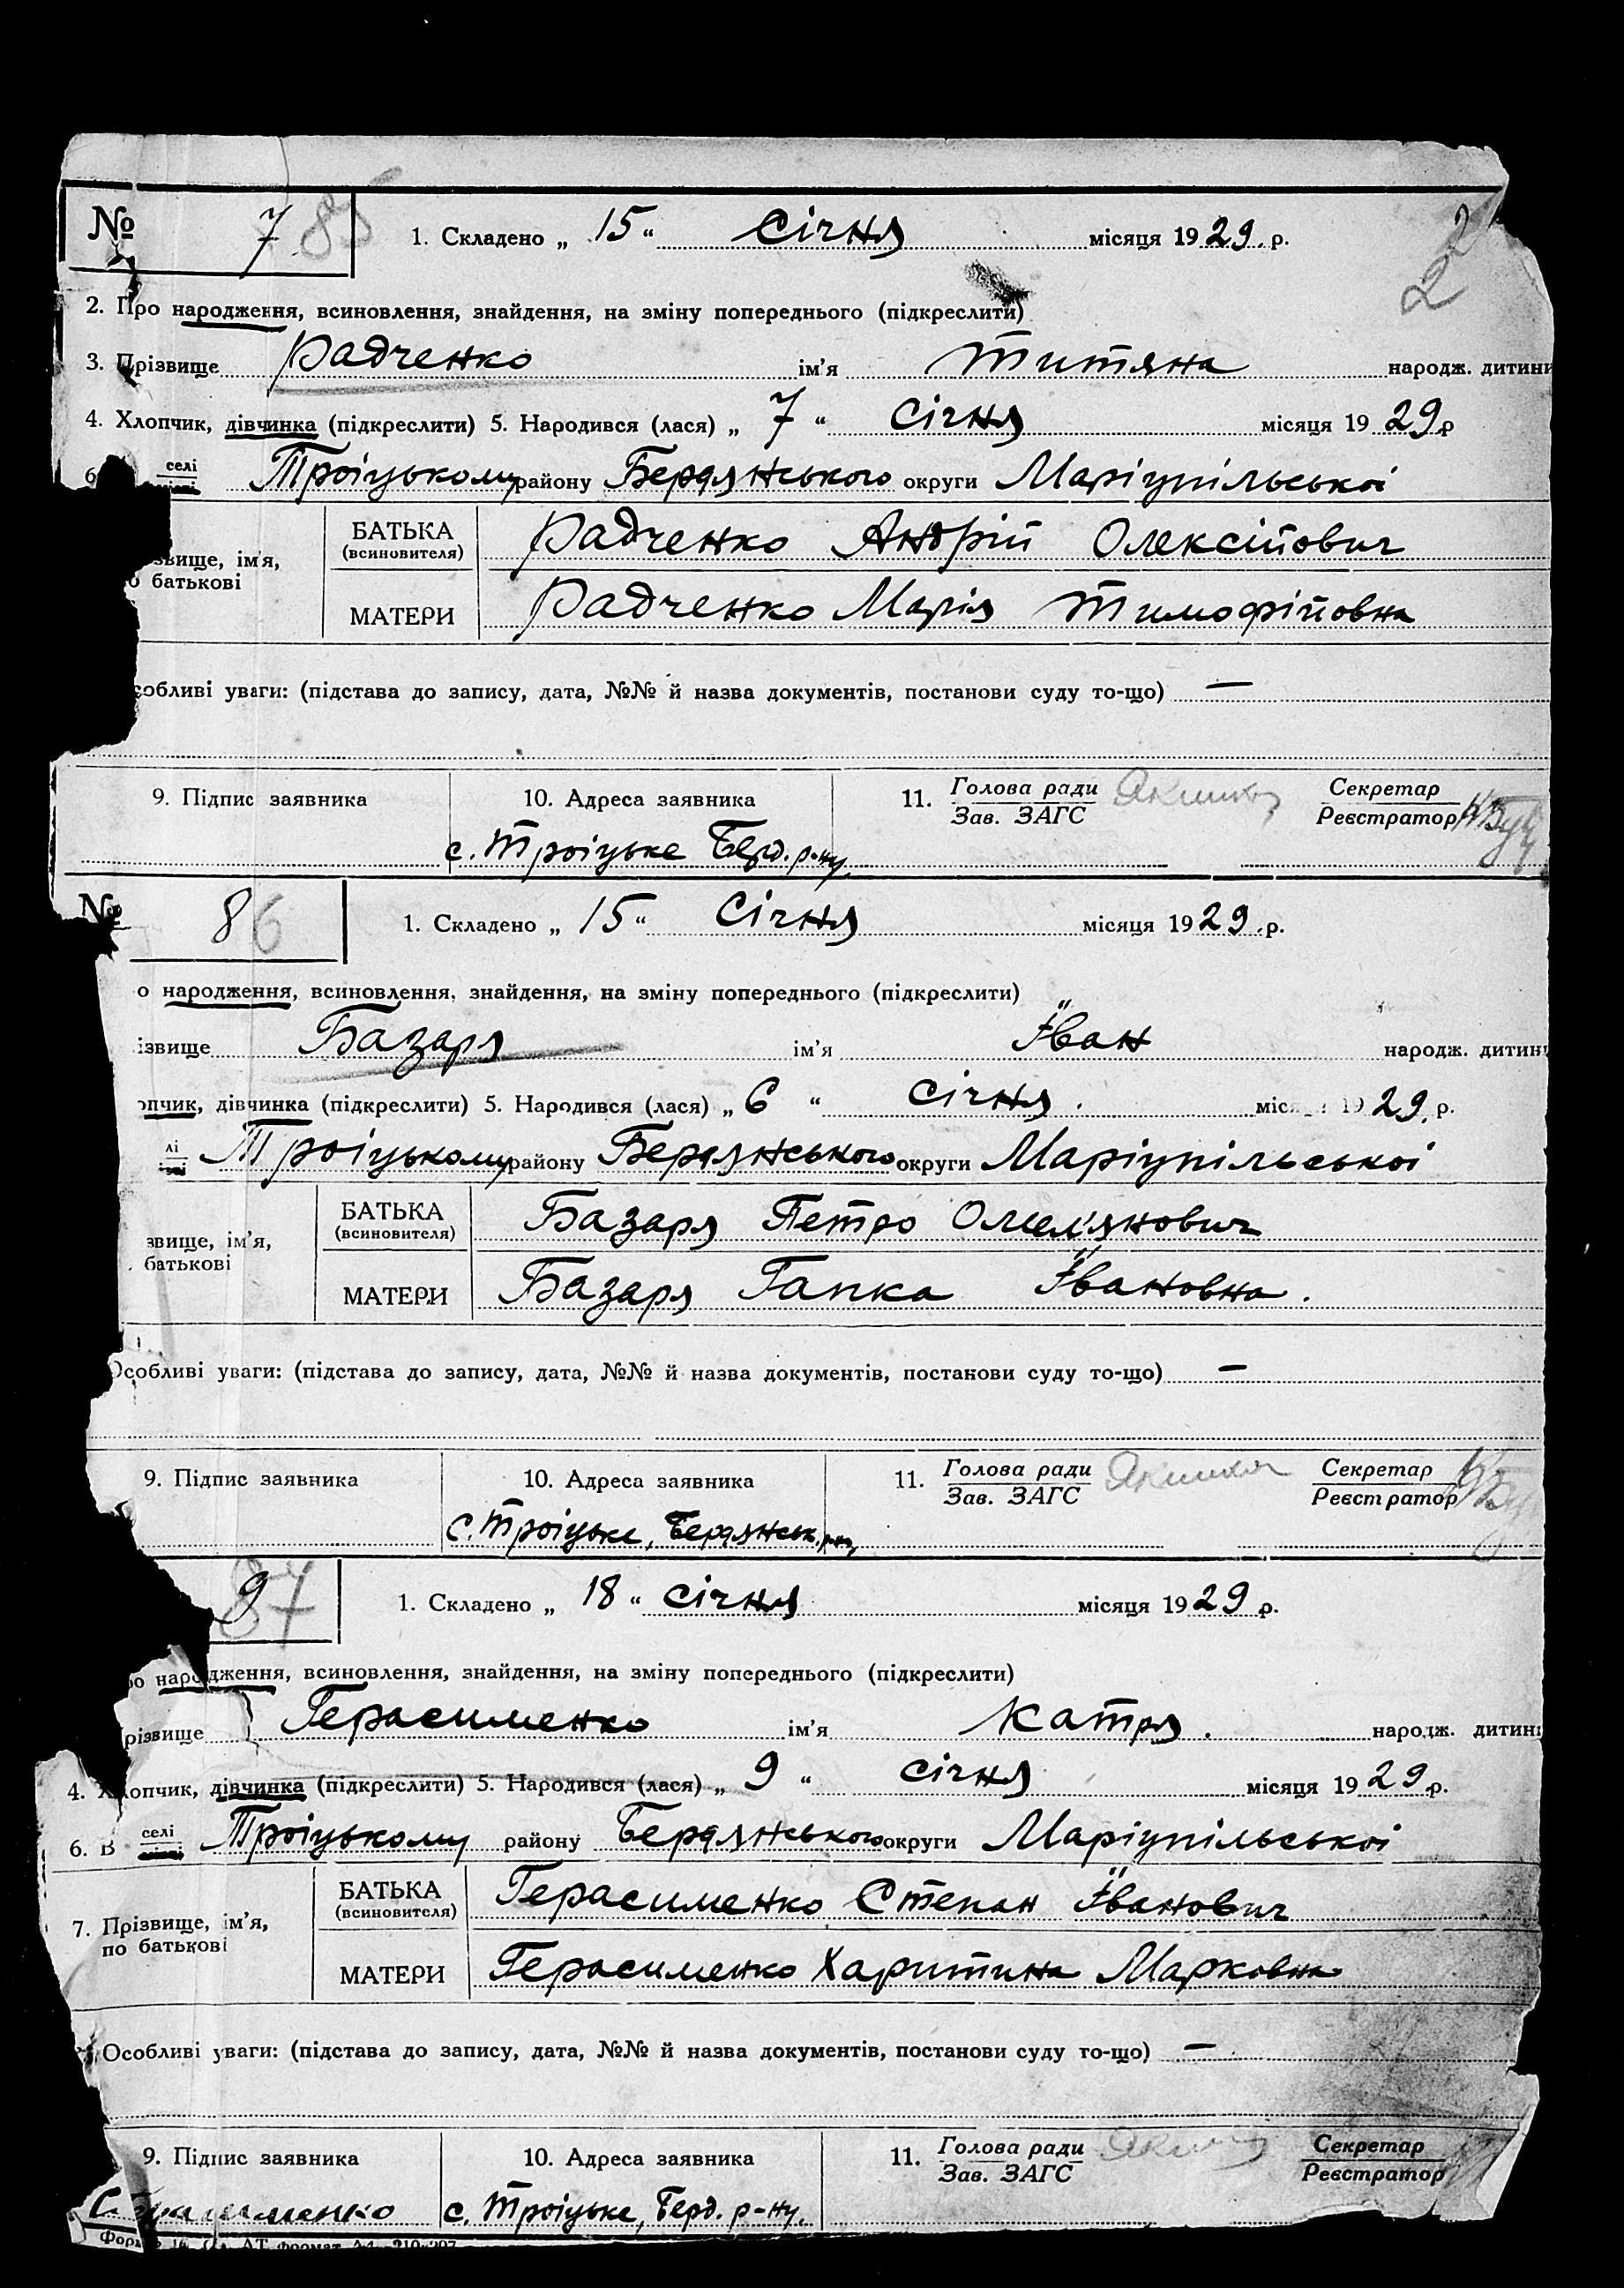 № 7 85 1. Складено „ 15 “ Січня місяця 1929. р.
2
2. Про народження, всиновлення, знайдення, на зміну попереднього (підкреслити)
3. Прізвище Радченко ім’я Титяна народж. дитини
4. Хлопчик, дівчинка (підкреслити) 5. Народився (лася) „ 7 “ Січня місяця 1929 р
6. селі Троіцькому району Бердянського округи Маріупільськоі
БАТЬКА Радченко Андрій Олексійович
(всиновителя)
звище, ім'я,
о батькові
МАТЕРИ Радченко Марія Тимофійовна
собливі уваги: (підстава до запису, дата, №№ й назва документів, постанови суду то-що) —
9. Підпис заявника 10. Адреса заявника 11. Голова ради Секретар
Зав. ЗАГС Реєстратор
с. Троіцьке Берд. р-ну.
№ 86 1. Складено „ 15 “ Січня місяця 1929. р.
о народження, всиновлення, знайдення, на зміну попереднього (підкреслити)
ізвище Базаря ім’я Іван народж. дитини
опчик, дівчинка (підкреслити) 5. Народився (лася) „ 6 “ Січня. міс 1929. р.
лі Троіцькому району Бердянського округи Маріупільськоі
БАТЬКА Базаря Петро Омел'янович
(всиновителя)
звище, ім’я,
батькові
МАТЕРИ Базаря Гапка Івановна.
Особливі уваги: (підстава до запису, дата, №№ й назва документів, постанови суду то-що) —
9. Підпис заявника 10. Адреса заявника 11. Голова ради Секретар
Зав. ЗАГС Реєстратор
с. Троіцьке, Бердянськ. р-ну,
9 87 1. Складено „ 18 “ січня 1929 р.
о народження, всиновлення, знайдення, на зміну попереднього (підкреслити)
різвище Герасименко ім’я Катря. народж. дитини
4. Хлопчик, дівчинка (підкреслити) 5. Народився (лася) „ 9 “ січня місяця 1929 р.
6. В селі Троіцькому району Бердянського округи Маріупільськоі
БАТЬКА Герасименко Степан Іванович
(всиновителя)
7. Прізвище, ім’я,
по батькові
МАТЕРИ Герасименко Харитина Марковна
Особливі уваги: (підстава до запису, дата, №№ й назва документів, постанови суду то-що) —
9. Підпис заявника 10. Адреса заявника 11. Голова ради Секретар
Зав. ЗАГС Реєстратор
С. Герасименко с. Троіцьке, Берд. р-ну.